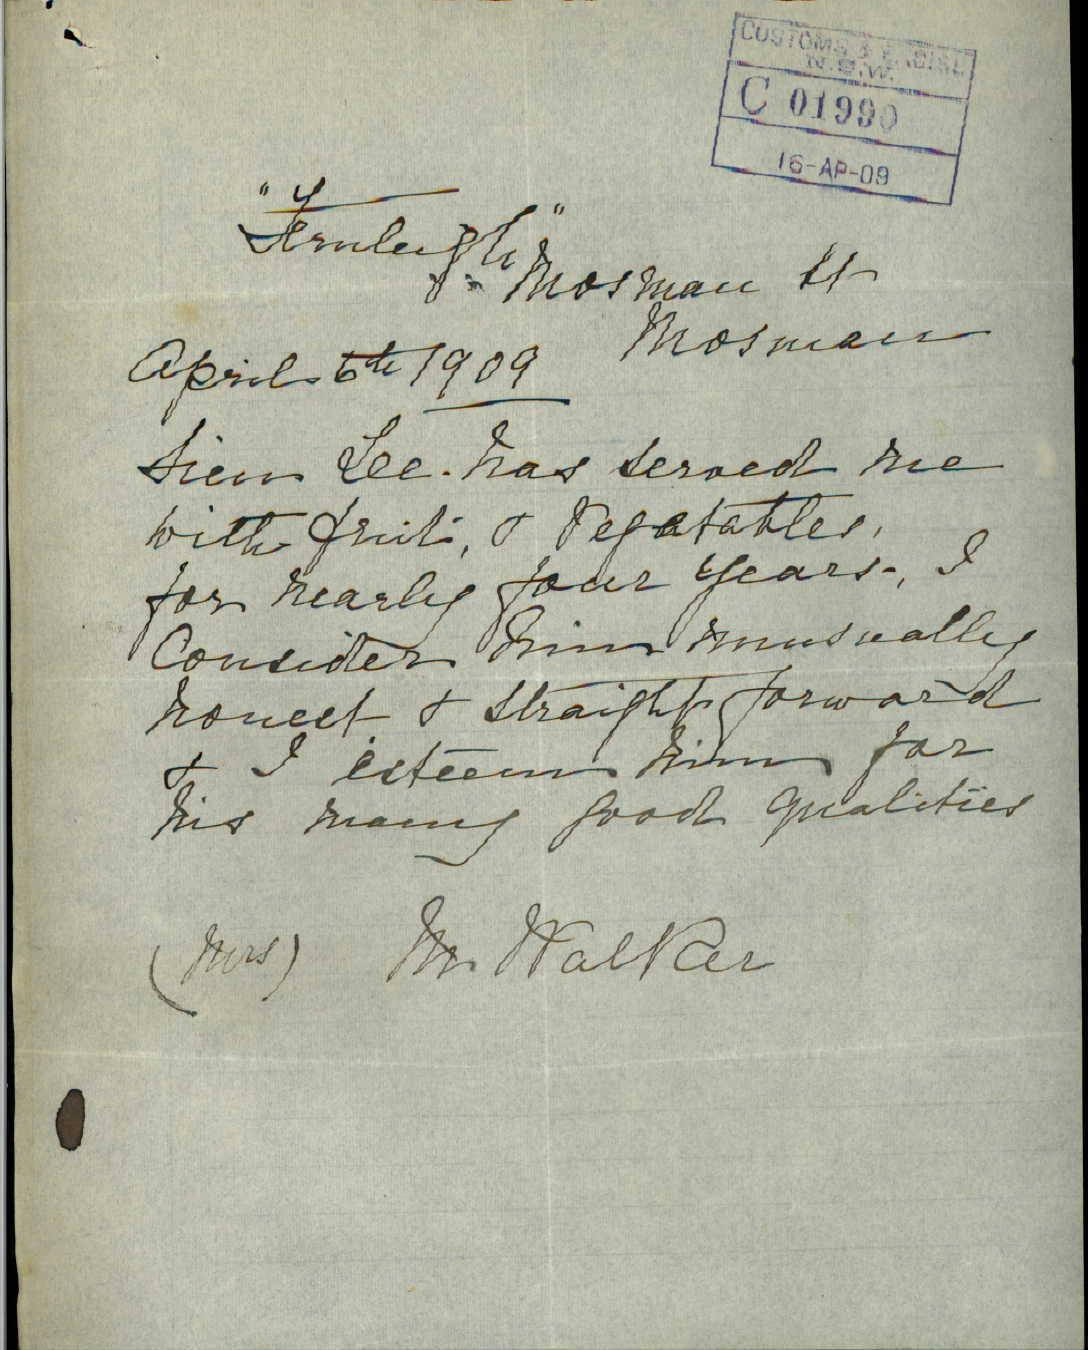 CUSTOMS & EXCISE
N.S.W.
C 01990
16-AP-09
"Fernleigh"
Mosman St
Mosman
April 6th 1909
Siem Lee has served me
with fruit, & Vegatables,
for nearly four years, I
Consider him unusually
honest & straightforward
& I esteem him for
his many good qualities
(Mrs) M. Walker